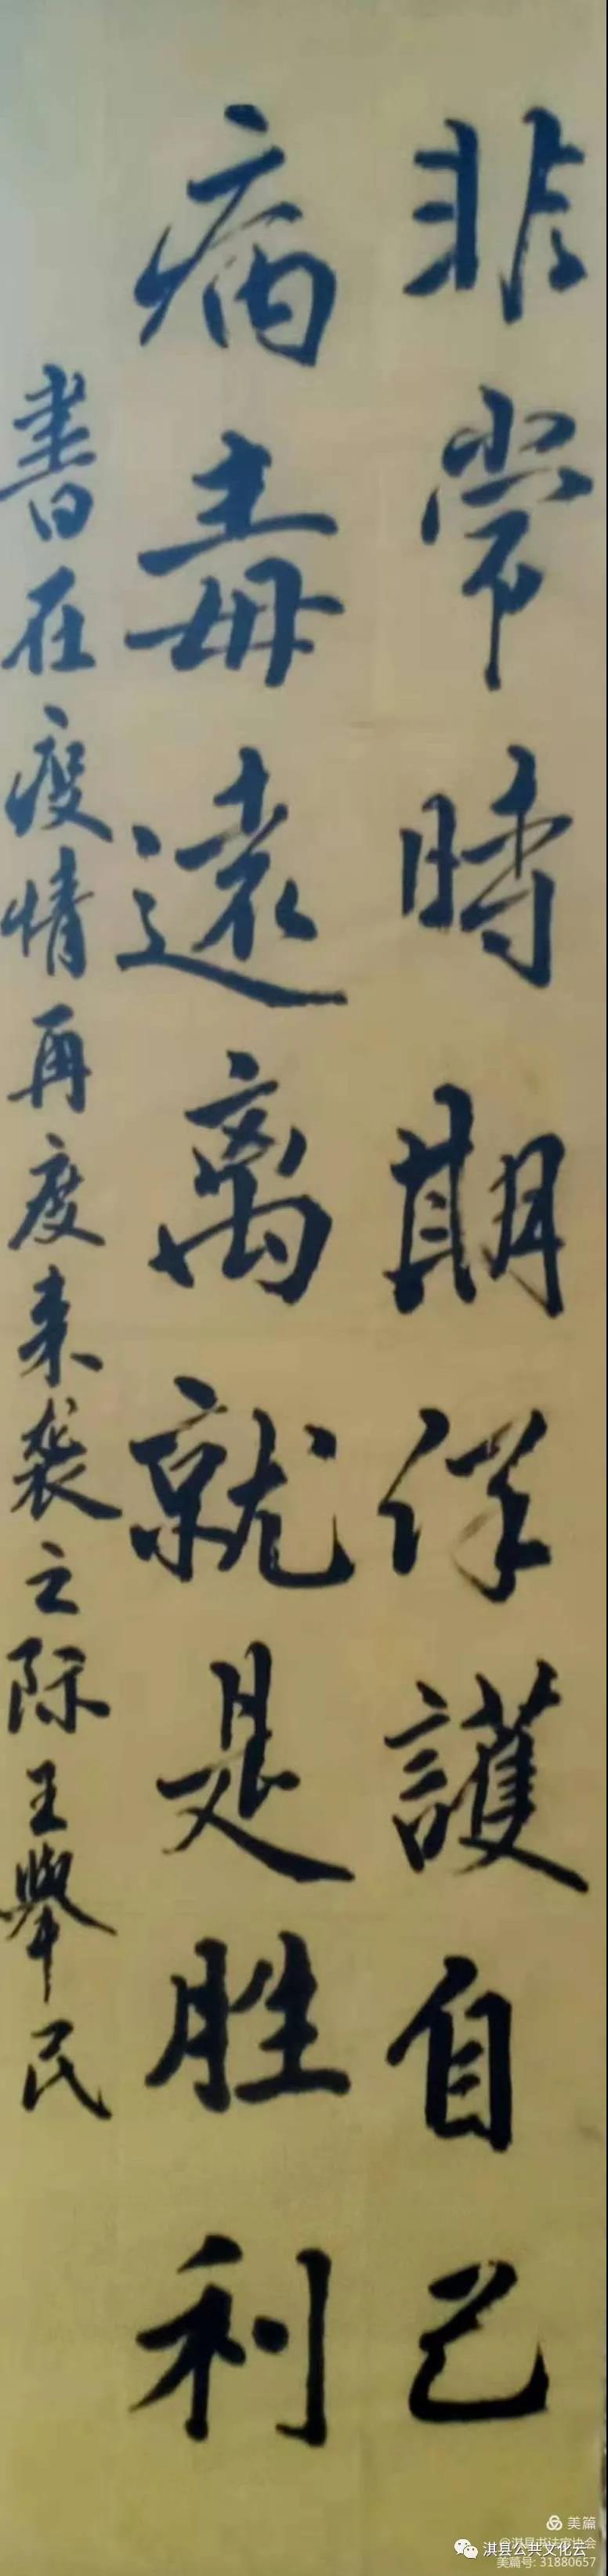 非常时期保護自己
病毒遠离就是胜利
書在疫情再度来袭之际王舉民
美篇
@淇县书法家协会
淇县公共文化云
美篇号: 31880657